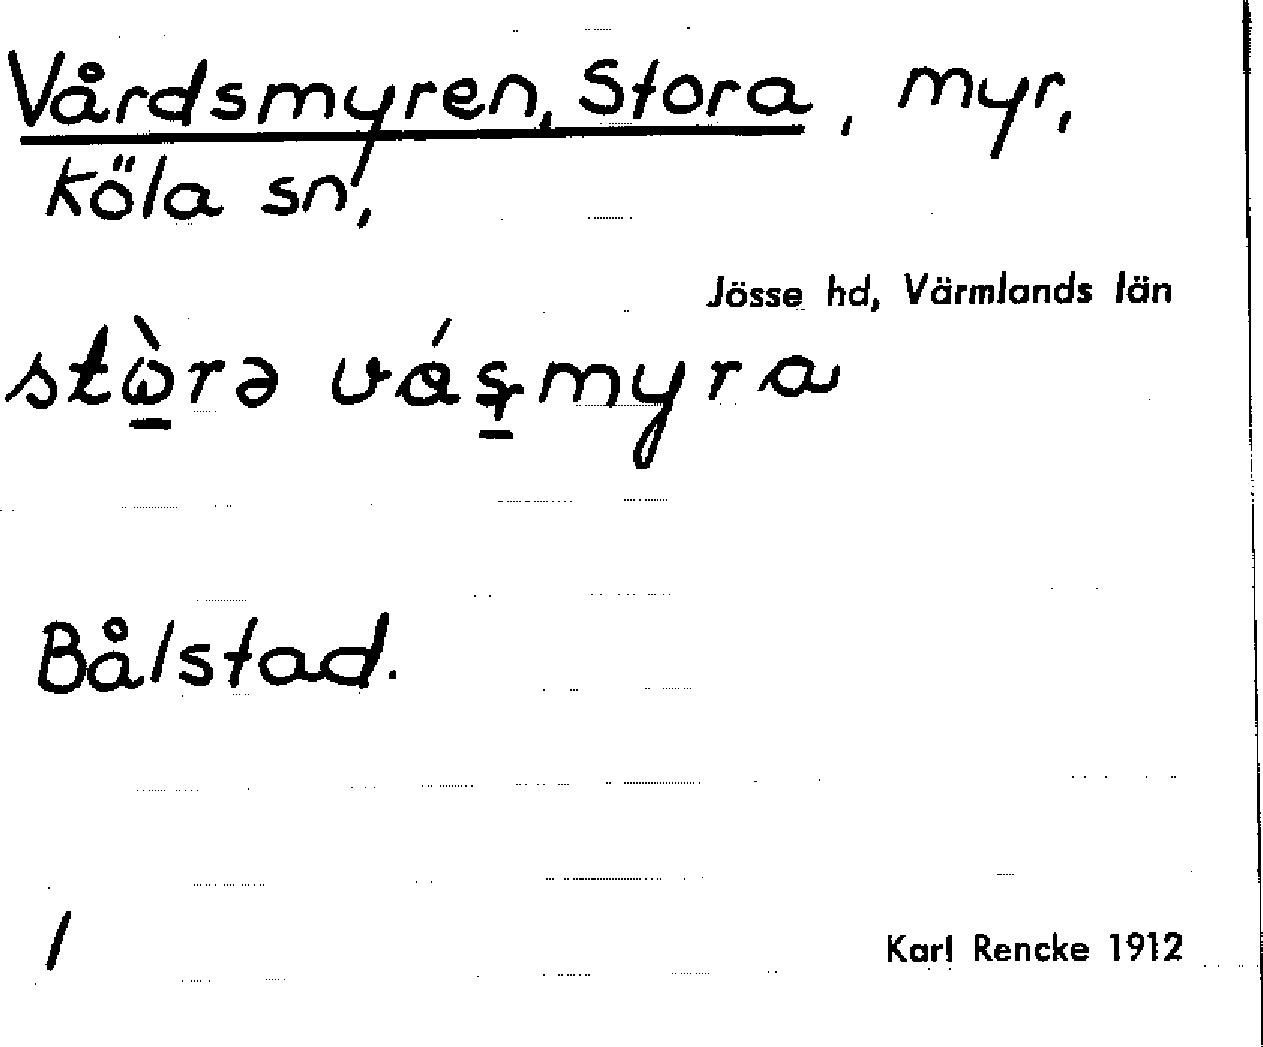 Vårdsmyren, Stora, myr,
Köla sn,
Jösse hd, Värmlands län
stὼ̠rə vá̱ʂ̠myra
Bålstad.
/
Karl Rencke 1912